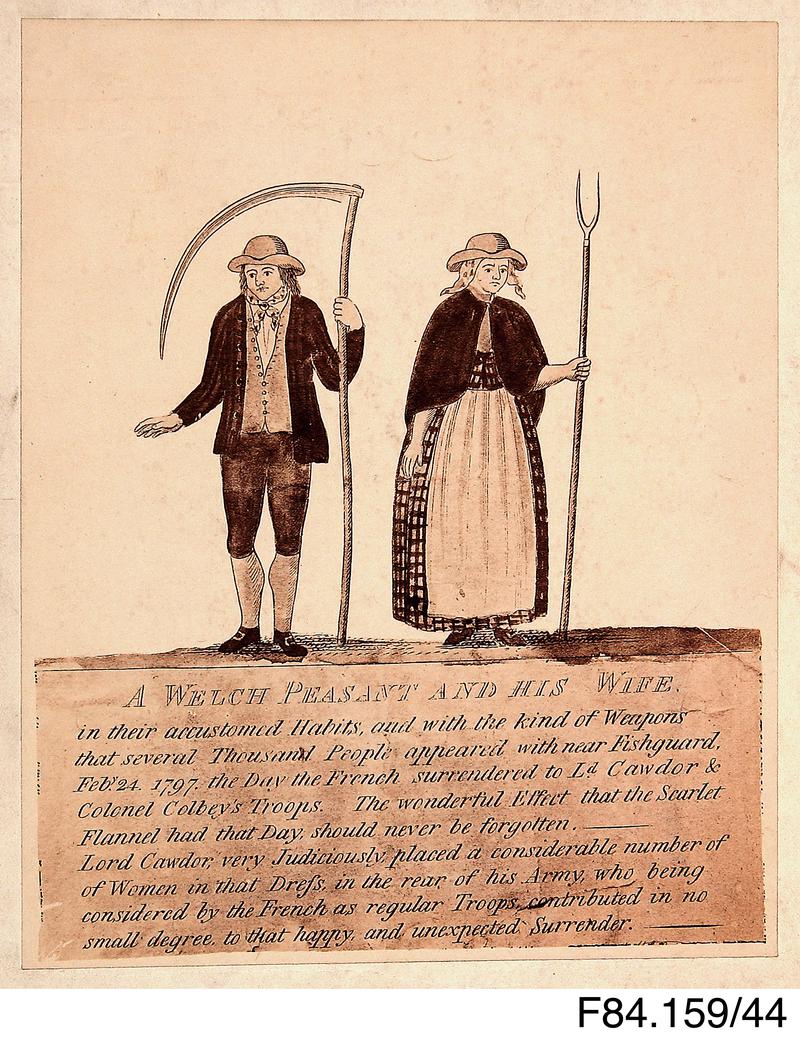 A WELCH PEASANT AND HIS WIFE.
in their accustomed Habits, and with the kind of Weapons
that several Thousand People appeared with near Fishguard,
Feby. 24. 1797. the Day the French surrendered to Ld Cawdor &
Colonel Colbey's Troops. The wonderful Effect that the Scarlet
Flannel had that Day, should never be forgotten.
Lord Cawdor, very Judiciously, placed a considerable number of
of Women in that Dreſs, in the rear of his Army, who being
considered by the French as regular Troops, contributed in no
small degree, to that happy, and unexpected Surrender.
F84.159/44